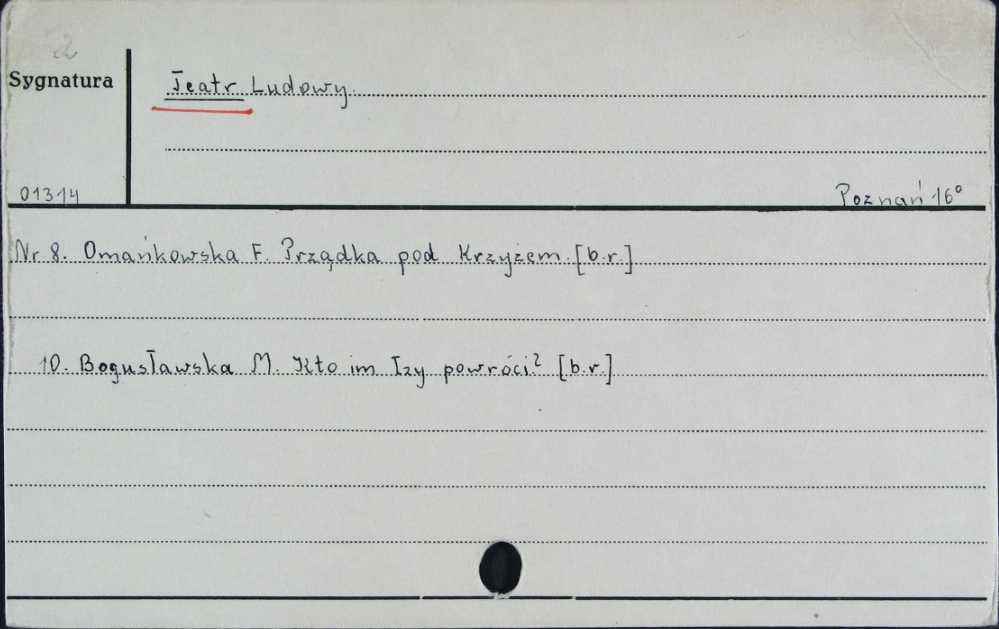 2
Sygnatura
Teatr Ludowy.
01314
Poznań 16°
Nr 8. Omańkowska F. Prządka pod Krzyżem. [b.r.]
10. Bogusławska M. Kto im łzy powróci? [b.r.]